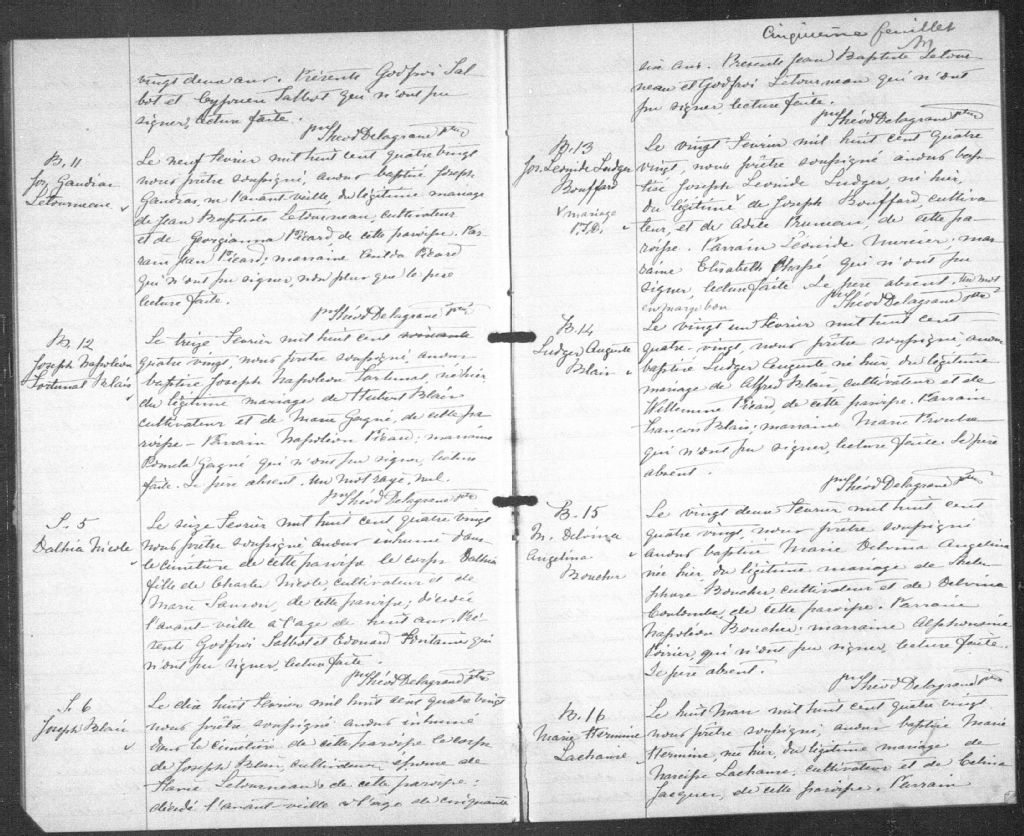 vingt deux ans. Présents Godfroi Tal-
bot et Talbot qui n'ont pu
signer, lecture faite.
Théod Delagrave ptre
B. 11
Jos. Gaudias
Letourneau
Le neuf Fevrier mil huit cent quatre vingt
nous prêtre soussigné, avons baptisé Joseph
Gaudias, né l'avant veille, du légitime mariage
de Jean Baptiste Letourneau, cultivateur
et de Georgianna Picard, de cette paroisse. Par-
rain Jean Picard; marraine Picard
qui n'ont pu signer, non plus que le pere
lecture faite.
Théod Delagrave ptre
B. 12
Joseph Napoléon
Fortunat Blais
Le treize Fevrier mil huit cent soixante
quatre vingt, nous prêtre soussigné, avons
baptisé Joseph Napoléon Fortunat, né hier
du légitime mariage de Hubert Blais
cultivateur et de Marie Gagné, de cette pa-
roisse - Parrain Napoléon Picard; marraine
Pamela Gagné qui n'ont pu signer, lecture
faite. Le pere absent. Un mot rayé, nul.
Théod Delagrave ptre
S. 5
Dalhia Nicole
Le seize Fevrier mil huit cent quatre vingt
nous prêtre soussigné avons inhumé dans
le cimetière de cette paroisse le corps Dalhia
fille de Charles Nicole, cultivateur et de
Marie Samson, de cette paroisse; décédée
l'avant veille à l'age de huit ans. Pré-
sents Godfroi Talbot et Edouard Fontaine qui
n'ont pu signer, lecture faite.
Théod Delagrave ptre
S. 6
Joseph Blais
Le dix huit Fevrier mil huit cent quatre vingt
nous prêtre soussigné avons inhumé
dans le cimetière de cette paroisse le corps
de Joseph Blais, cultivateur, epoux de
Marie Letourneau de cette paroisse;
décédé l'avant veille à l'age de cinquante
Cinquième feuillet
six ans. Présents Jean Baptiste Letour-
neau et Godfroi Letourneau qui n'ont
pu signer, lecture faite.
Théod Delagrave ptre
B. 13
Jos. Leonide Ludger
Bouffard
mariage
Le vingt Fevrier mil huit cent quatre
vingt, nous prêtre soussigné avons bap-
tisé Joseph Leonide Ludger, né hier,
du légitime de Joseph Bouffard, cultiva-
teur, et de Adele Pruneau, de cette pa-
roisse. Parrain Léonide Mercier; mar-
raine Elisabeth qui n'ont pu
signer, lecture faite. Le pere absent. Un mot
en marge bon
Théod Delagrave ptre
B. 14
Ludger Auguste
Blais
Le vingt un Fevrier mil huit cent
quatre-vingt, nous prêtre soussigné, avons
baptisé Ludger Auguste né hier du légitime
mariage de Alfred Blais, cultivateur et de
Willemine Picard, de cette paroisse. Parrain
Francois Blais; marraine Marie
qui n'ont pu signer, lecture faite. Le pere
absent.
Théod Delagrave ptre
B. 15
M. Delvina
Angelina
Boucher
Le vingt deux Fevrier mil huit cent
quatre vingt, nous prêtre soussigné
avons baptisé Marie Delvina Angelina
née hier, du légitime mariage de Theles-
phore Boucher cultivateur et de Delvina
Coulombe, de cette paroisse. Parrain
Napoléon Boucher; marraine Alphonsine
Poirier qui n'ont pu signer, lecture faite.
Le pere absent.
Théod Delagrave ptre
B. 16
Marie Hermine
Lachance
Le huit Mars mil huit cent quatre vingt,
nous prêtre soussigné, avons baptisé Marie
Hermine, née hier, du légitime mariage de
Narcisse Lachance, cultivateur et de Celina
Jacques, de cette paroisse. Parrain